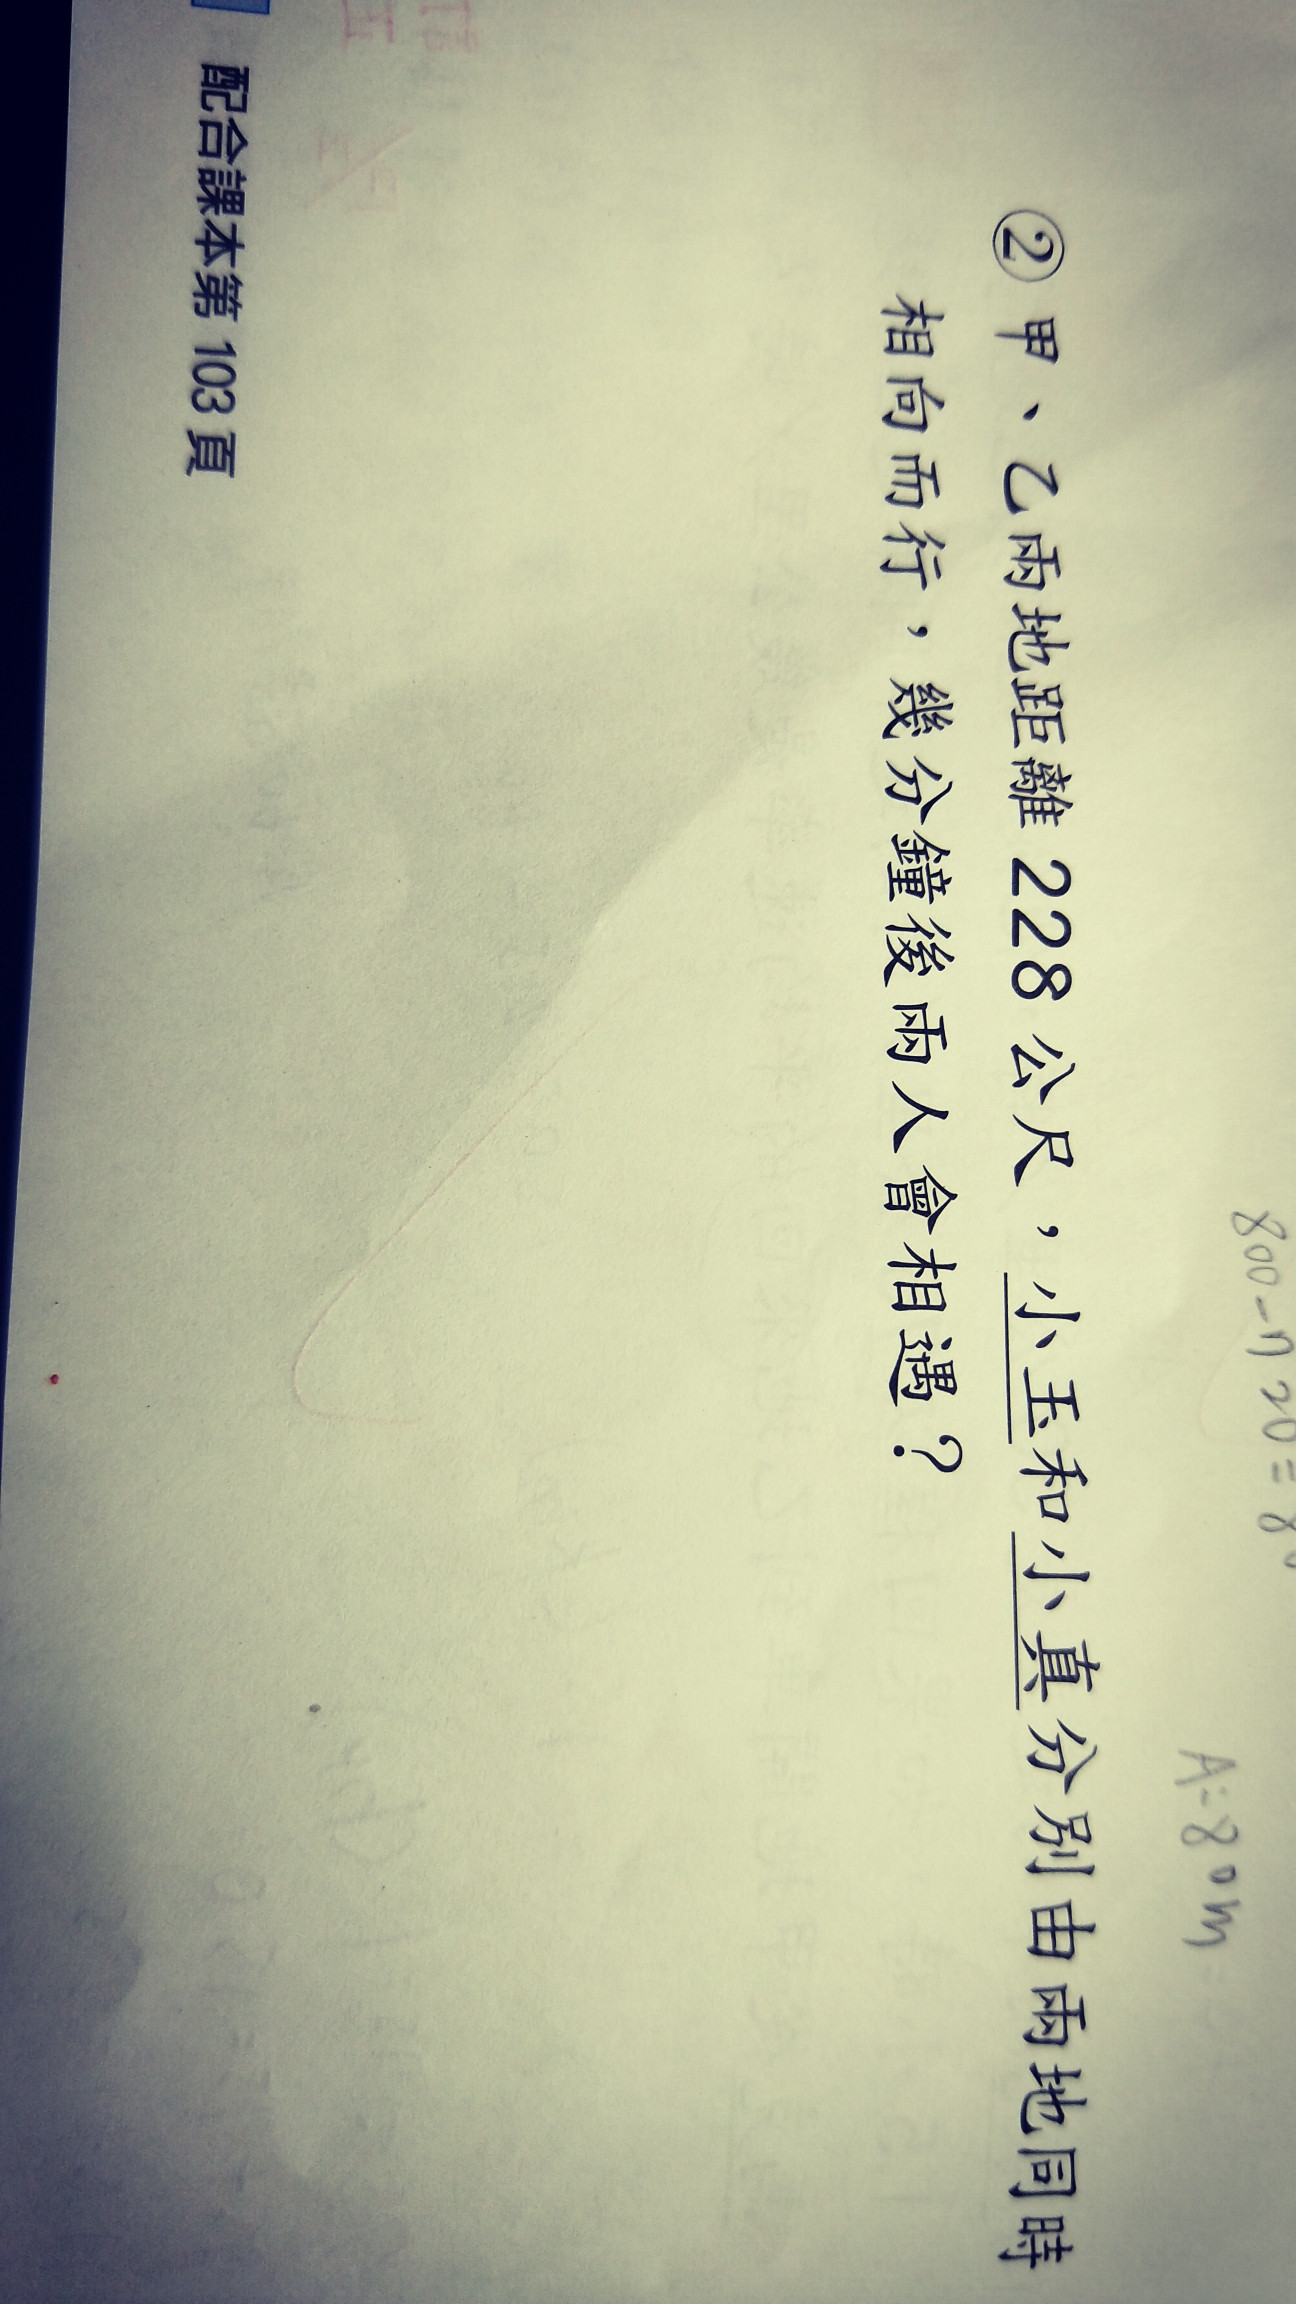 800-720=80
A:80m
②甲、乙兩地距離228公尺，小玉和小真分別由兩地同時
相向而行，幾分鐘後兩人會相遇？
配合課本第103頁